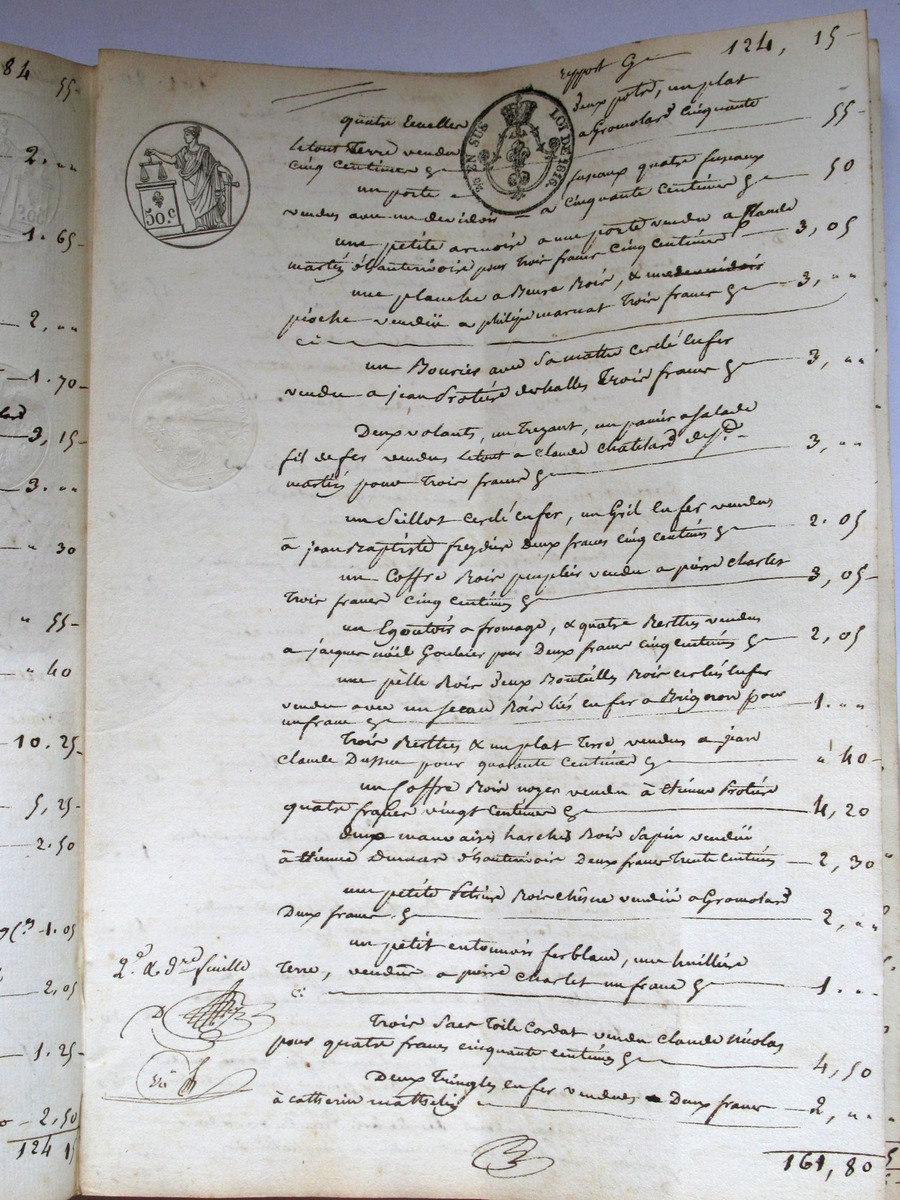 84 55-
2. "
1. 65
2, "
1. 70-
3, 15-
3. "
" 30
" 55-
" 40
10. 25-
5, 25-
2. 50
1. 05
2, 05
1. 25
2, 50
124 15
50. c
EN SUS LOI DE 1816.
report 124, 15-
quatre deux pots, un plat
letout Terre vendu a Gromolard cinquante
cinq Centimes 55-
un porte fuseaux quatre fuseaux
vendus avec un devidoir a Cinquante Centimes 50
une petite armoire a une porte vendu a Claude
martin d'hauterivoire pour Trois francs Cinq Centimes 3, 05
une planche a Beure Bois, & une devidoir
pioche vendüe a philipe marnat Trois francs 3, "
ci
un Bourier avec Sa matte Cerclé en fer
vendu a jean Protière deshalles Trois francs 3, "
Deux volants, un Trezant, un panier a Salade
fil de fer vendus letout a Claude Chatelard de St
martin pour Trois francs 3, "
un Seillot Cerclé en fer, un Gril en fer vendus
à jean Baptiste freydiere deux francs cinq Centimes 2. 05
un Coffre Bois peuplier vendu a pierre Charlet
Trois francs Cinq Centimes 3, 05-
un Egoutoir a fromage, & quatre Berthes vendus
a jacques nöel Goutier pour Deux francs cinq Centimes 2, 05
une pêlle Bois deux Bouteilles Bois cerclés en fer
vendu avec un Seau Bois liés en fer a Brignon pour
un franc 1. "
Trois Berthes & un plat Terre vendus a jean
Claude Dussue pour quarante Centimes " 40
un Coffre Bois noyer vendu à Etienne Protière
quatre francs vingt Centimes 4, 20
deux mauvaises harches Bois Sapin vendüe
à Etienne d'hauterivoir Deux francs Trente Centimes 2, 30
une petite Petriere Bois chêne vendüe a Gromolard
Deux francs 2, "
un petit entonnoir ferblanc, une huillière
Terre, vendüe a pierre Charlet un franc 1. "
ci
2e & dre feuille
Trois Sacs Toile Cordat vendu Claude Nicolas
pour quatre francs cinquante Centimes 4, 50
Deux Tringles en fer vendues Deux francs 2, "
à catherin mathelin
161, 80